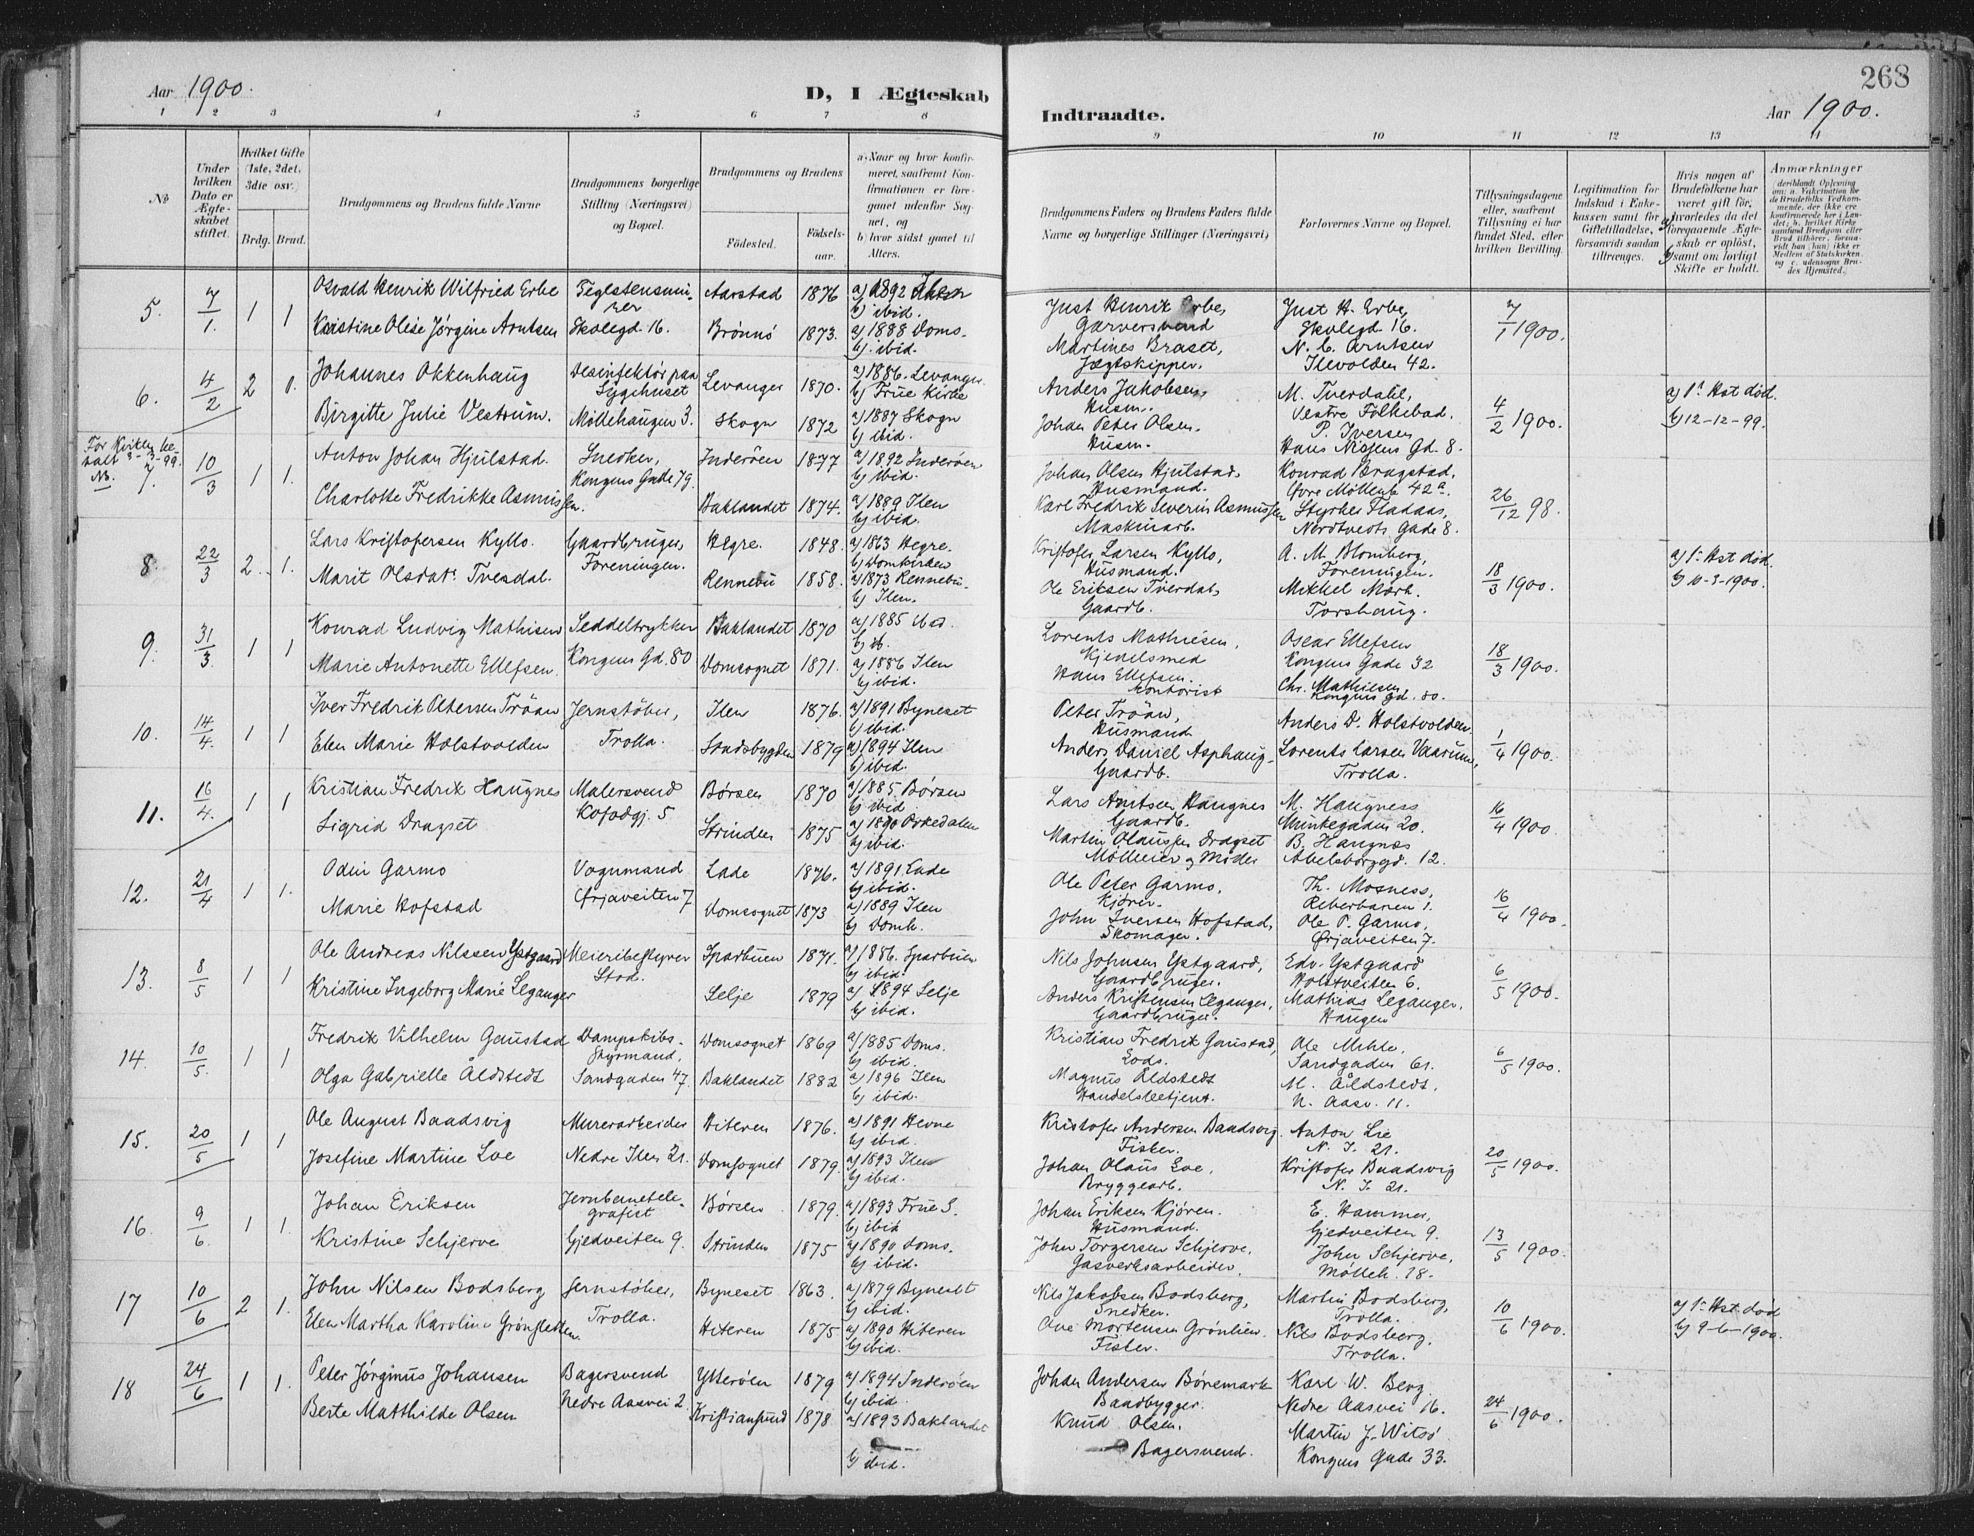 268
Aar 1900.
D, I Ægteskab
Indtraadte.
Aar 1900.
1 2 3 4 5 6 7 8 9 10 11 12 13 14
No
Under hvilken Dato er Ægteskabet stiftet.
Hvilket Gifte (1ste, 2det, 3die osv.)
Brdg. Brud.
Brudgommens og Brudens fulde Navne
Brudgommens borgerlige Stilling (Næringsvei) og Bopæl.
Brudgommens og Brudens
Fødested.
Fødselsaar.
a) Naar og hvor konfirmeret, saafremt Konfirmationen er foregaaet udenfor Sognet, og
b) hvor sidst gaaet til Alters.
Brudgommens Faders og Brudens Faders fulde Navne og borgerlige Stillinger (Næringsvei)
Forlovernes Navne og Bopæl.
Tillysningsdagene eller, saafremt Tillysning ei har fundet Sted, efter hvilken Bevilling.
Legitimation for Indskud i Enkekassen samt for Giftetilladelse, forsaavidt saadan tiltrænges.
Hvis nogen af Brudefolkene har været gift før, a) hvorledes da det foregaaende Ægteskab er opløst, b) samt om lovligt Skifte er holdt.
Anmærkninger
5. 7/1. 1 1
Osvald Henrik Wilfried Erbe
Teglstensmurer
Aarstad 1876 a) 1892
b) ibid.
Kristine Olise Jørgine Arntsen
Skolegd. 16.
Brønnø 1873. a) 1888 Doms.
b) ibid.
Just Henrik Erbe,
Garversvend
Martines Braset,
Jægtskipper.
Just H. Erbe,
Skolegd. 16.
N. C. Arntsen
Ilevolden 42.
7/1 1900.
6. 4/2 2 1.
Johannes Okkenhaug
Desinfektør paa Sygehuset
Levanger 1870. a) 1886. Levanger
b) Frue Kirke
Birgitte Julie Vestrum.
Möllehaugen 3.
Skogn 1872 a) 1887 Skogn
b) ibid.
Anders Jakobsen,
Husm.
Johan Peter Olsen.
Husm.
M. Tverdahl,
Vestre Folkebad.
P. Iversen
Hans Nissens Gd. 8.
4/2 1900.
a) 1ste Hst død.
b) 12-12-99.
7. 10/3 1 1.
Anton Johan Hjulstad.
Snedker,
Kongens Gade 79.
Inderøen 1877 a) 1892 Inderøen
b) ibid.
Charlotte Fredrikke Asmussen.
Baklandet 1874. a) 1889 Ilen
b) ibid.
Johan Olsen Hjulstad,
Husmand.
Karl Fredrik Severin Asmussen
Maskinarb.
Konrad Bragstad,
Øvre Möllenb. 42a.
Styrker Fladaas,
Nordtvedts Gade 8.
26/12 98.
8. 22/3 2. 1.
Lars Kristofersen Kyllo.
Gaardbruger,
Foreningen.
Hegre. 1848. a) 1863 Hegre.
b) Domkirken
Marit Olsdatr. Tvesdal.
Rennebu 1858. a) 1873 Rennebu.
b) Ilen.
Kristofer Larsen Kyllo,
Husmand.
Ole Eriksen Tverdal,
Gaardb.
A. M. Blomberg,
Foreningen.
Mikkel Mork.
Torshaug.
18/3 1900.
a) 1ste Hst død.
b) 10-3-1900.
9. 31/3. 1 1
Konrad Ludvig Mathisen
Seddeltrykker
Kongens Gd. 80
Baklandet 1870 a) 1885 ibid.
b) ib.
Marie Antonette Ellefsen.
Domsognet 1871. a) 1886 Ilen
b) ibid.
Lorents Mathiesen,
Kjedelsmed
Hans Ellefsen.
Kontorist
Oscar Ellefsen
Kongens Gade 32
Chr. Mathiesen
Kongens gd. 80.
18/3 1900.
10. 14/4. 1 1
Iver Fredrik Petersen Tröan
Jernstöber,
Trolla.
Ilen 1876. a) 1891 Byneset
b) ibid.
Elen Marie Holstvolden
Stadsbygden 1879 a) 1894 Ilen
b) ibid.
Peter Tröan,
Husmand
Anders Daniel Asphaug
Gaardb.
Anders D. Holstvolden
Lorents Larsen Vaarum,
Trolla.
1/4 1900.
11. 16/4. 1 1
Kristian Fredrik Haugnes
Malersvend
Kofodgj. 5
Børsen 1870 a) 1885 Børsen
b) ibid.
Sigrid Dragset
Strinden 1875 a) 1890 Orkedalen
b) ibid.
Lars Arntsen Haugnes
Gaardb.
Martin Olausen Dragset
Mölleier og Möller
M. Haugness
Munkegaden 20.
B. Haugnes
Abelsborggd. 12.
16/4 1900.
12. 21/4 1 1.
Odin Garmo
Vognmand
Ørjaveiten 7
Lade 1876. a) 1891 Lade
b) ibid.
Marie Hofstad
Domsognet 1873 a) 1889 Ilen
b) Domk.
Ole Peter Garmo,
Kjörer.
John Iversen Hofstad,
Skomager.
Th. Mosness,
Reberbanen 1.
Ole P. Garmo,
Ørjaveiten 7.
16/4 1900.
13. 8/5 1 1
Ole Andreas Nilssen Ystgaard
Meieribestyrer
Stod.
Sparbuen 1871. a) 1886. Sparbuen
b) ibid.
Kristine Ingeborg Marie Leganger
Selje 1879 a) 1894 Selje
b) ibid.
Nils Johnsen Ystgaard,
Gaardbruger.
Anders Kristensen Leganger,
Gaardbruger.
Edv. Ystgaard
Holstveiten 6.
Mathias Leganger,
Haugen
6/5 1900.
14. 10/5. 1 1
Fredrik Vilhelm Gaustad
Dampskibs-
Styrmand,
Sandgaden 47.
Domsognet 1869 a) 1885 Doms.
b) ibid.
Olga Gabrielle Åldstedt
Baklandet 1882 a) 1896 Ilen
b) ibid.
Kristian Fredrik Gaustad,
Lods.
Magnus Åldstedt
Handelsbetjent.
Ole Mehle,
Sandgaden 61.
M. Åldstedt,
N. Aasv. 11.
6/5 1900.
15. 20/5 1 1
Ole August Baadsvig
Murerarbeider
Nedre Ilen 21.
Hiteren 1876. a) 1891 Hevne
b) ibid.
Josefine Martine Loe
Domsognet 1879. a) 1893 Ilen
b) ibid.
Kristofer Andersen Baadsvig
Fisker.
Johan Olaus Loe,
Bryggearb.
Anton Lie
N. I. 21.
Kristofer Baadsvig
N. I. 21.
20/5 1900.
16. 9/6. 1 1.
Johan Eriksen
Jernbanetelegrafist
Gjedveiten 9.
Børsen 1879. a) 1893 Frue S.
b) ibid
Kristine Schjerve
Strinden 1875 a) 1890 Doms.
b) ibid.
Johan Eriksen Kjören.
Husmand.
John Torgersen Schjerve,
Gasverksarbeider.
E. Hammer,
Gjedveiten 9.
John Schjerve,
Mölleb. 18.
13/5 1900.
17 10/6 2 1.
John Nilsen Bodsberg
Jernstöber,
Trolla.
Byneset 1863. a) 1879 Byneset
b) ibid.
Elen Martha Karoline Grönsletten.
Hiteren 1875 a) 1890 Hiteren
b) ibid.
Nils Jakobsen Bodsberg,
Snedker.
Ove Mortensen Grönlien.
Fisker.
Martin Bodsberg,
Trolla.
Nils Bodsberg,
Trolla.
10/6 1900.
a) 1ste Hst. død
b) 9-6-1900.
18 24/6 1 1.
Peter Jørginus Johansen
Bagersvend
Nedre Aasvei 2.
Ytterøen 1879 a) 1894 Inderøen
b) ibid.
Berte Matthilde Olsen
Kristiansund 1878. a) 1893 Baklandet
b) ibid.
Johan Andersen Börsmark
Baadbygger.
Knud Olsen.
Bagersvend.
Karl W. Berg.
Nedre Aasvei 16.
Martin J. Witsø
Kongens Gade 33.
24/6 1900.